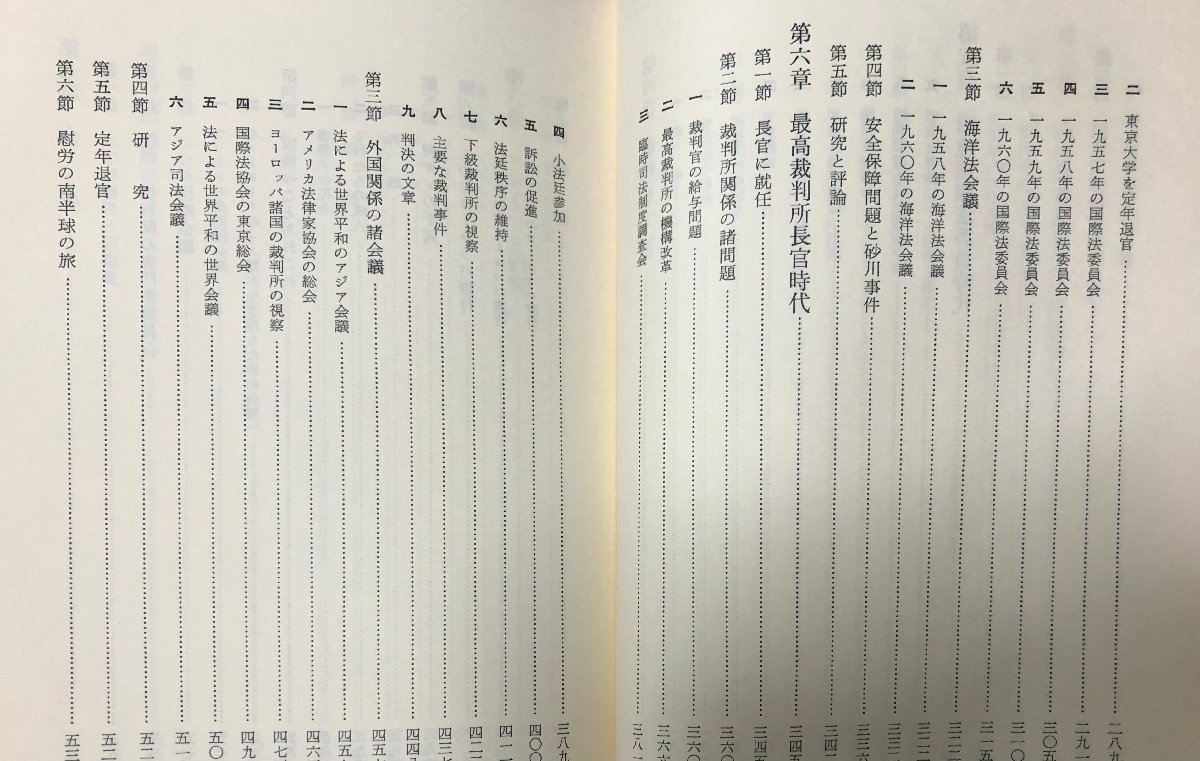 二 東京大学を定年退官……二八九
三 一九五七年の国際法委員会……
四 一九五八年の国際法委員会……三〇五
五 一九五九年の国際法委員会……三一〇
六 一九六〇年の国際法委員会……三一五
第三節 海洋法会議……
一 一九五八年の海洋法会議……
二 一九六〇年の海洋法会議……
第四節 安全保障問題と砂川事件……
第五節 研究と評論……
第六章 最高裁判所長官時代……三四五
第一節 長官に就任……三四五
第二節 裁判所関係の諸問題……三六〇
一 裁判官の給与問題……三六〇
二 最高裁判所の機構改革……三六六
三 臨時司法制度調査会……
四 小法廷参加……三八九
五 訴訟の促進……
六 法廷秩序の維持……
七 下級裁判所の視察……
八 主要な裁判事件……
九 判決の文章……
第三節 外国関係の諸会議……
一 法による世界平和のアジア会議……
二 アメリカ法律家協会の総会……
三 ヨーロッパ諸国の裁判所の視察……
四 国際法協会の東京総会……
五 法による世界平和の世界会議……
六 アジア司法会議……
第四節 研究……
第五節 定年退官……
第六節 慰労の南半球の旅……